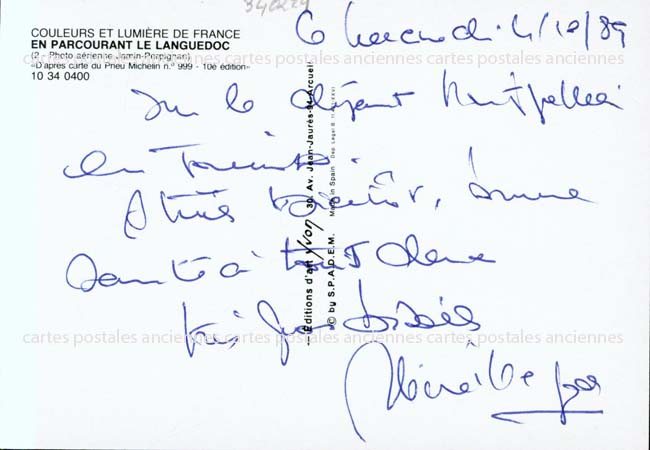 340224
COULEURS ET LUMIÈRE DE FRANCE
EN PARCOURANT LE LANGUEDOC
(2 - Photo aérienne Jamin-Perpignan)
«D'après carte du Pneu Michelin n.º 999 - 10e édition»
10 34 0400
le Mercredi 4/10/89
cartes postales anciennes cartes postales anciennes cartes postales anciennes
sur le départ Montpellier
en
A très bientôt, bonne
santé à tous deux
très gros bisous
cartes postales anciennes cartes postales anciennes cartes postales anciennes
Mireille
Éditions d'art yvon 30, Av. Jean-Jaurès-94-Arcueil
© by S.P.A.D.E.M. Made in Spain